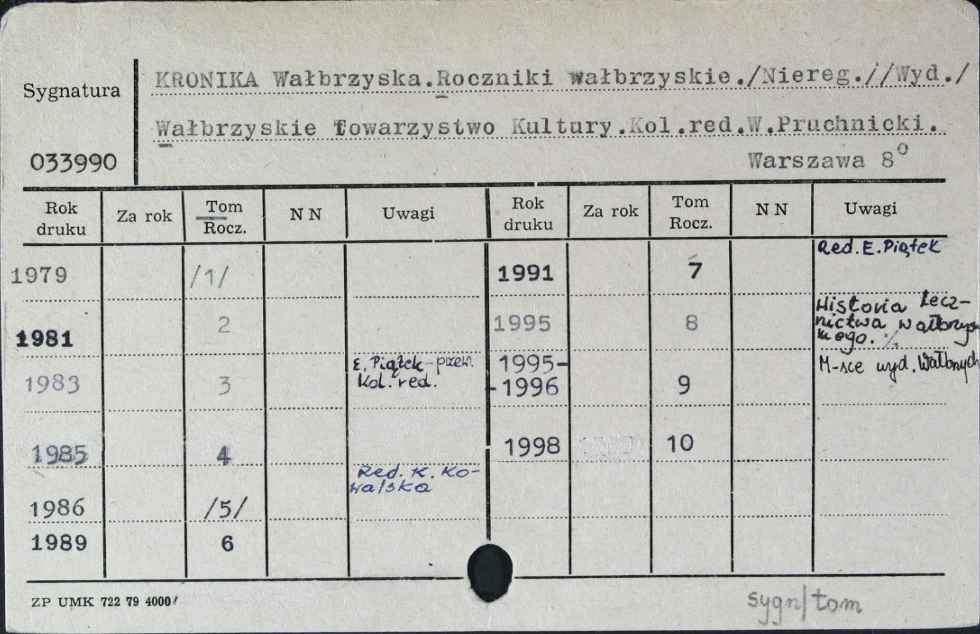 KRONIKA Wałbrzyska.Roczniki wałbrzyskie./Niereg.//Wyd./
Sygnatura
Wałbrzyskie Towarzystwo Kultury.Kol.red.W.Pruchnicki.
033990
Warszawa 8°
Rok druku Za rok Tom Rocz. N N Uwagi Rok druku Za rok Tom Rocz. N N Uwagi
1979 /1/ 1991 7 Red. E. Piątek
1981 2 1995 8 Historia lecz-
nictwa wałbrzys
kiego.
1983 3 E. Piątek - przew.
Kol. red.
1995-
-1996 9 M-sce wyd. Wałbrzych
1985 4 1998 10
Red. K. Ko-
walska
1986 /5/
1989 6
ZP UMK 722 79 4000
sygn/tom